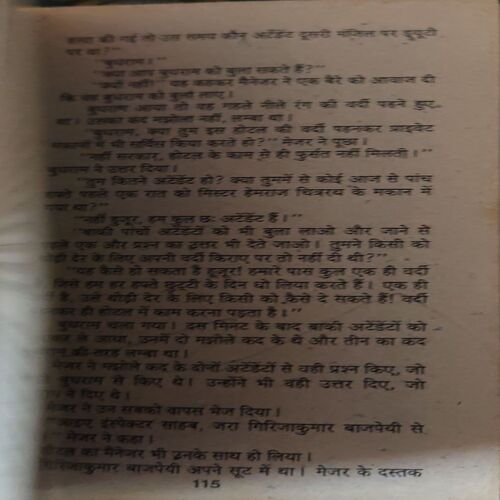 हत्या की गई तो उस समय कौन अटेंडेंट दूसरी मंजिल पर ड्यूटी
पर था?"
"बुधराम।"
"क्या आप बुधराम को बुला सकते हैं?"
"क्यों नहीं!" यह कहकर मैनेजर ने एक बैरे को आवाज दी
कि वह बुधराम को बुला लाए।
बुधराम आया तो वह गहले नीले रंग की वर्दी पहने हुए
था। उसका कद मझोला नहीं, लम्बा था।
"बुधराम, क्या तुम इस होटल की वर्दी पहनकर प्राइवेट
मकानों में भी सर्विस किया करते हो?" मेजर ने पूछा।
"नहीं सरकार, होटल के काम से ही फुर्सत नहीं मिलती।"
बुधराम ने उत्तर दिया।
"तुम कितने अटेंडेंट हो? क्या तुममें से कोई आज से पांच
हफ्ते पहले एक रात को मिस्टर हेमराज चित्ररथ के मकान में
गया था?"
"नहीं हुजूर, हम कुल छः अटेंडेंट हैं।"
"बाकी पांचों अटेंडेंटों को भी बुला लाओ और जाने से
पहले एक और प्रश्न का उत्तर भी देते जाओ। तुमने किसी को
थोड़ी देर के लिए अपनी वर्दी किराए पर तो नहीं दी थी?"
"यह कैसे हो सकता है हुजूर! हमारे पास कुल एक ही वर्दी
जिसे हम हर हफ्ते छुट्टी के दिन धो लिया करते हैं। एक ही
है, उसे थोड़ी देर के लिए किसी को कैसे दे सकते हैं! वर्दी
कर ही होटल में काम करना पड़ता है।"
बुधराम चला गया। दस मिनट के बाद बाकी अटेंडेंटों को
ले आया, उनमें दो मझोले कद के थे और तीन का कद
की तरह लम्बा था।
मेजर ने मझोले कद के दोनों अटेंडेंटों से वही प्रश्न किए, जो
बुधराम से किए थे। उन्होंने भी वही उत्तर दिए, जो
ने दिए थे।
मेजर ने उन सबको वापस भेज दिया।
"आइए इंस्पेक्टर साहब, जरा गिरिजाकुमार बाजपेयी से
" मेजर ने कहा।
होटल का मैनेजर भी उनके साथ ही लिया।
गिरिजाकुमार बाजपेयी अपने सूट में था। मेजर के दस्तक
115